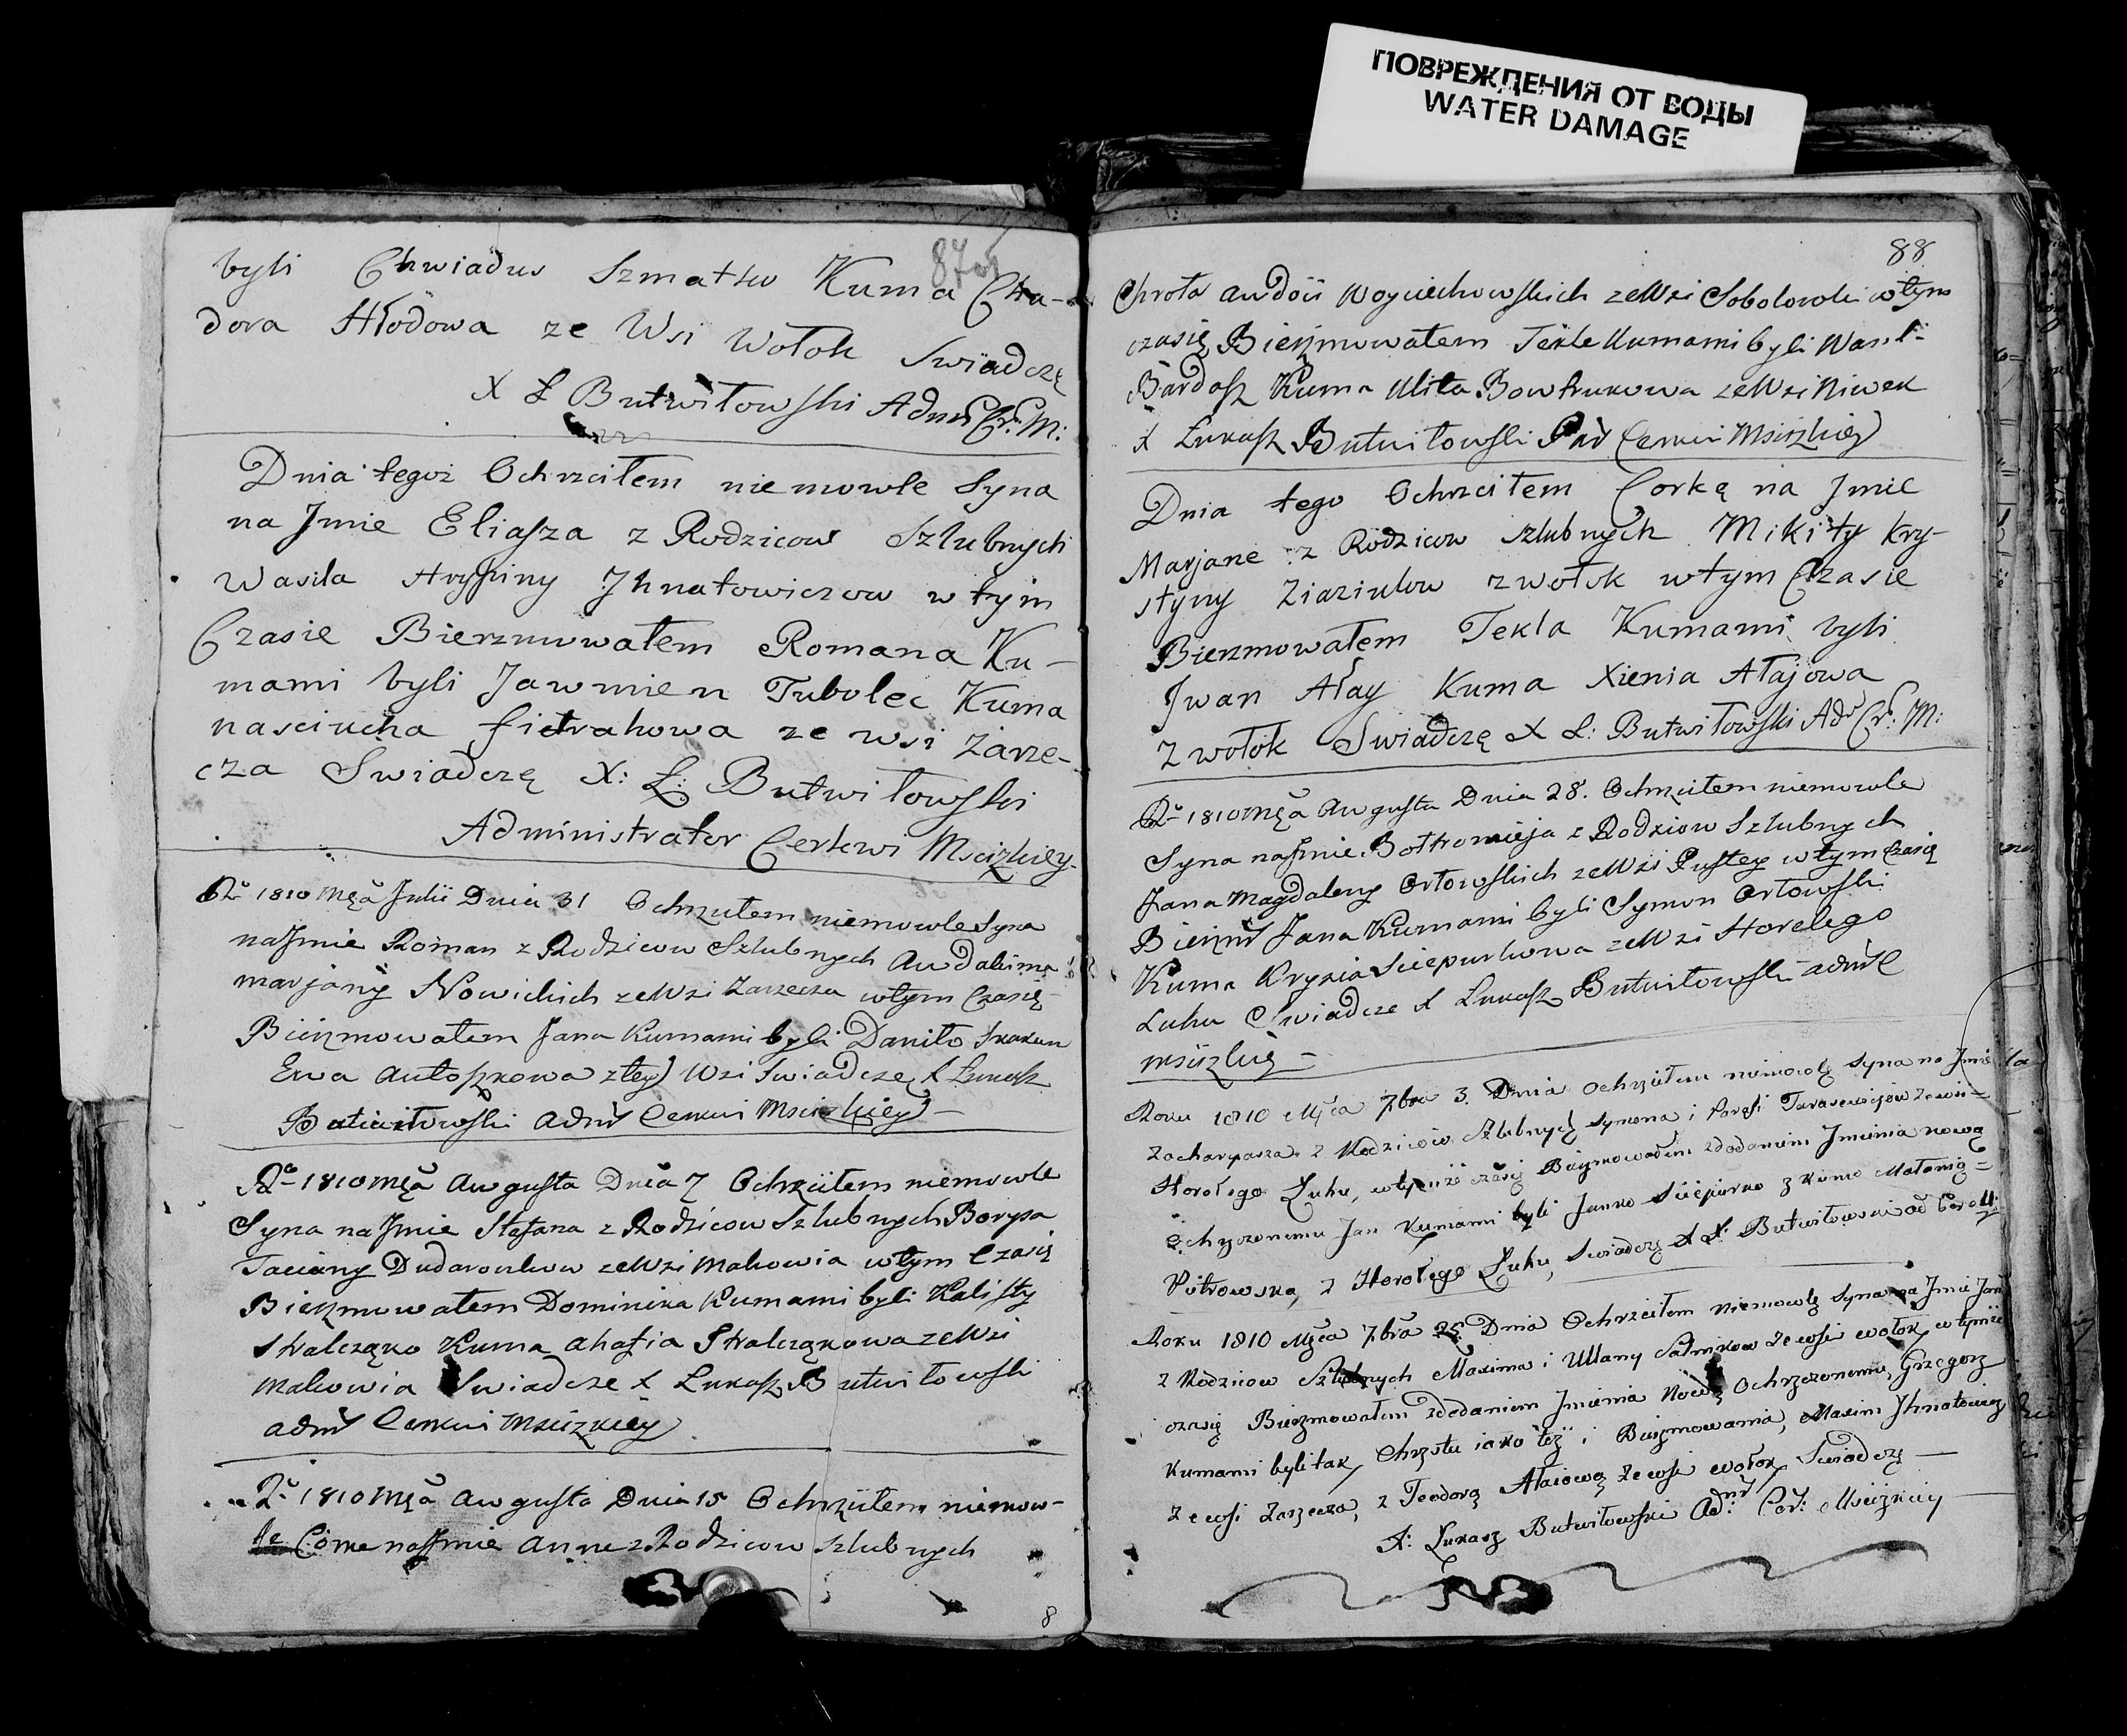 ПОВРЕЖДЕНИЯ ОТ ВОДЫ
WATER DAMAGE
87
byli Chwiadus Szmatko Kuma Chwa-
dora Hłodowa ze Wsi Wołok Swiadczę
X Ł Butwiłowski Admr Cr: M:
Dnia tegoż Ochrzciłem niemowle Syna
na Jmie Eliasza z Rodzicow Szlubnych
Wasila Arypiny Jhnatowiczow w tym
Czasie Bierzmowałem Romana Ku-
mami byli Jawmien Tubolec Kuma
nasciucha fietrahowa ze wsi Zarze-
cza Swiadczę X: Ł: Butwiłowski
Administrator Cerkwi Mscizkiey
Ru 1810 Mca Julii Dnia 31 Ochrzciłem niemowle Syna
na Jmie Roman z Rodzicow Szlubnych Awdakima
marjany Nowickich ze Wsi Zarzecza w tym Czasie
Bierzmowałem Jana Kumami byli Daniło Skakun
Ewa Antoszkowa z tey Wsi Swiadcze X Łukasz
Butwiłowski adnr Cerkwi Mscizkiey
Ru 1810 Mca Augusta Dnia 7 Ochrzciłem niemowle
Syna na Jmie Stefana z Rodzicow Szlubnych Borysa
Taciany Dudaronkow ze Wsi Makowia w tym Czasie
Bierzmowałem Dominika Kumami byli Kalisty
Stralczonko Kuma ahafia Stralczonkowa ze Wsi
Makowia Swiadcze X Łukasz Butwiłowski
adnr Cerkwi Mscizkiey
Ru 1810 Mca Augusta Dnia 15 Ochrzciłem niemow-
le Córke na Jmie Anne z Rodzicow Szlubnych
8
88
Chroła Awdoii Woyciechowskich ze Wsi Sobolowki w tym
czasie Bierzmowałem Tekle Kumami byli Wasil
Bardosz Kuma Ulita Bowtrukowa ze Wsi Niwek
X Łukasz Butwiłowski Cerkwi Mscizkiey
Dnia tego Ochrzciłem Corkę na Jmie
Marjane z Rodzicow szlubnych Mikity Kry-
styny Ziaziulow z wołok w tym Czasie
Bierzmowałem Tekla Kumami byli
Jwan Ałay Kuma Xienia Ałajowa
z wołok Swiadczę X Ł: Butwiłowski Adr Cr: M:
Ru 1810 Mca Augusta Dnia 28. Ochrzciłem niemowle
Syna na Jmie Bołtromieja z Rodzicow Szlubnych
Jana Magdaleny Orłowskich ze Wsi Pustey w tym Czasie
Bierzm Jana Kumami byli Symon Orłowski
Kuma Krysia Sciepurkowa ze Wsi Horelego
Luhu Swiadcze X Łukasz Butwiłowski adnr C
Mscizkiey
Roku 1810 Mca 7bra 3. Dnia Ochrzciłem niemowlę syna na Jmie
Zacharyasza z Rodzicow Szlubnych Symona i Parasi Tarasewiczow ze wsi
Horołego Łuhu, w tymże czasie Bierzmowałem z dodaniem Jmienia nowo
Ochrzczonemu Jan Kumami byli Janko Sciepurko z Kumo Małanią
Pitrowską, z Horołego Łuhu, Swiadczę X Ł: Butwiłowski ad Cer: M:
Roku 1810 Mca 7bra 25 Dnia Ochrzciłem Niemowlę Syna na Jmie Jan
z Rodzicow Szlubnych Maxima i Ullany Sałnikow ze wsi wołok, w tymże
czasie Bierzmowałem z dodaniem Jmienia Nowo Ochrzczonemu, Grzegorz
Kumami byli tak Chrzstu iako też i Bierzmowania, Maxim Jhnatowicz
ze wsi Zarzecza, z Teodorą Ałaiową ze wsi wołok, Swiadczę
X: Łukasz Butwiłowski Adnr: Cer: Mscizkiey